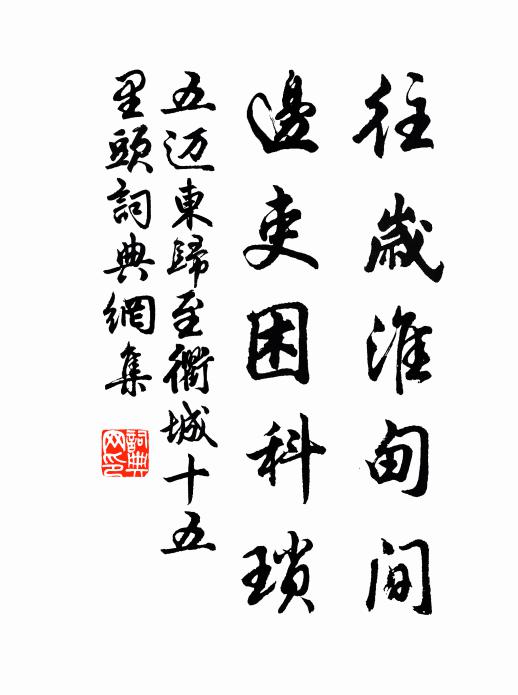 往歲淮甸間
邊吏困科瑣
五迈東歸至衢城十五
里頭詞典網集
詞典网印